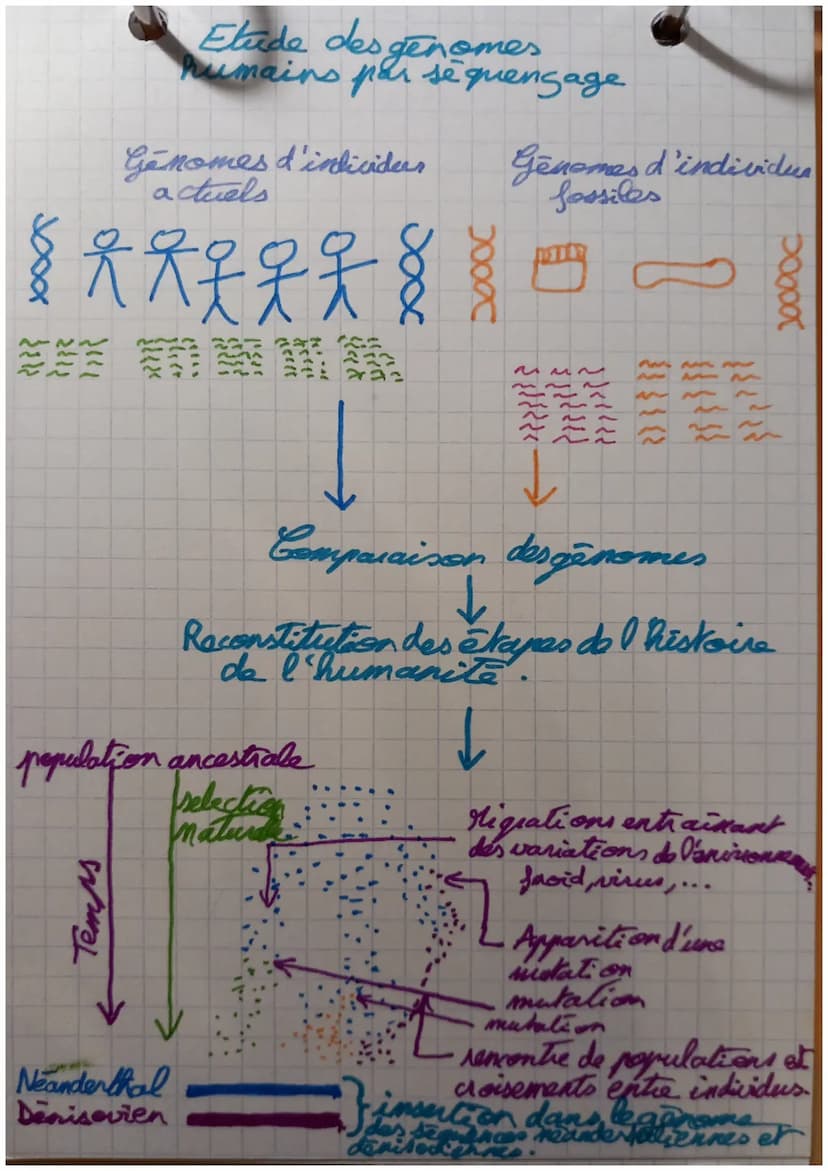 Etude des génomes
humains par séquençage
Génomes d'individus
actuels
Génomes d'individus
fossiles
Comparaison des génomes
Reconstitution des étapes de l'histoire
de l'humanité.
population ancestrale
selection
naturelle
Temps
Migrations entraînant
des variations de l'environnement
froid, virus, ...
Apparition d'une
mutation
mutation
mutation
rencontre de populations et
croisements entre individus.
Néanderthal
Dénisovien
insertion dans le génome
des séquences néanderthaliennes et
dénisoviennes.